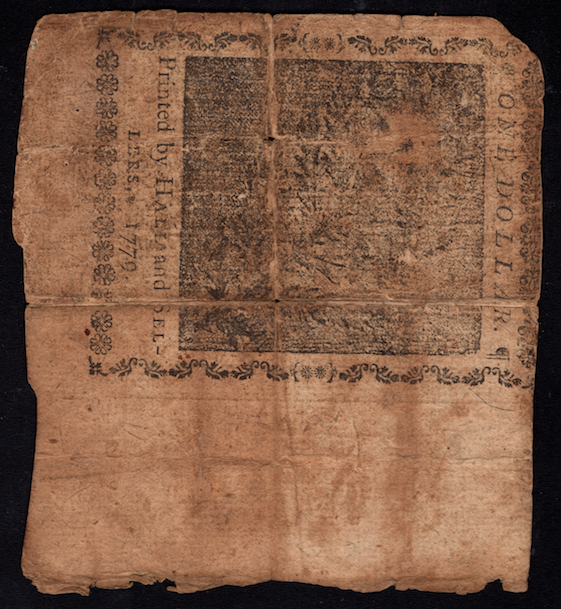 ONE DOLLAR. ¶
Printed by HALL and SEL-
LERS. 1779.